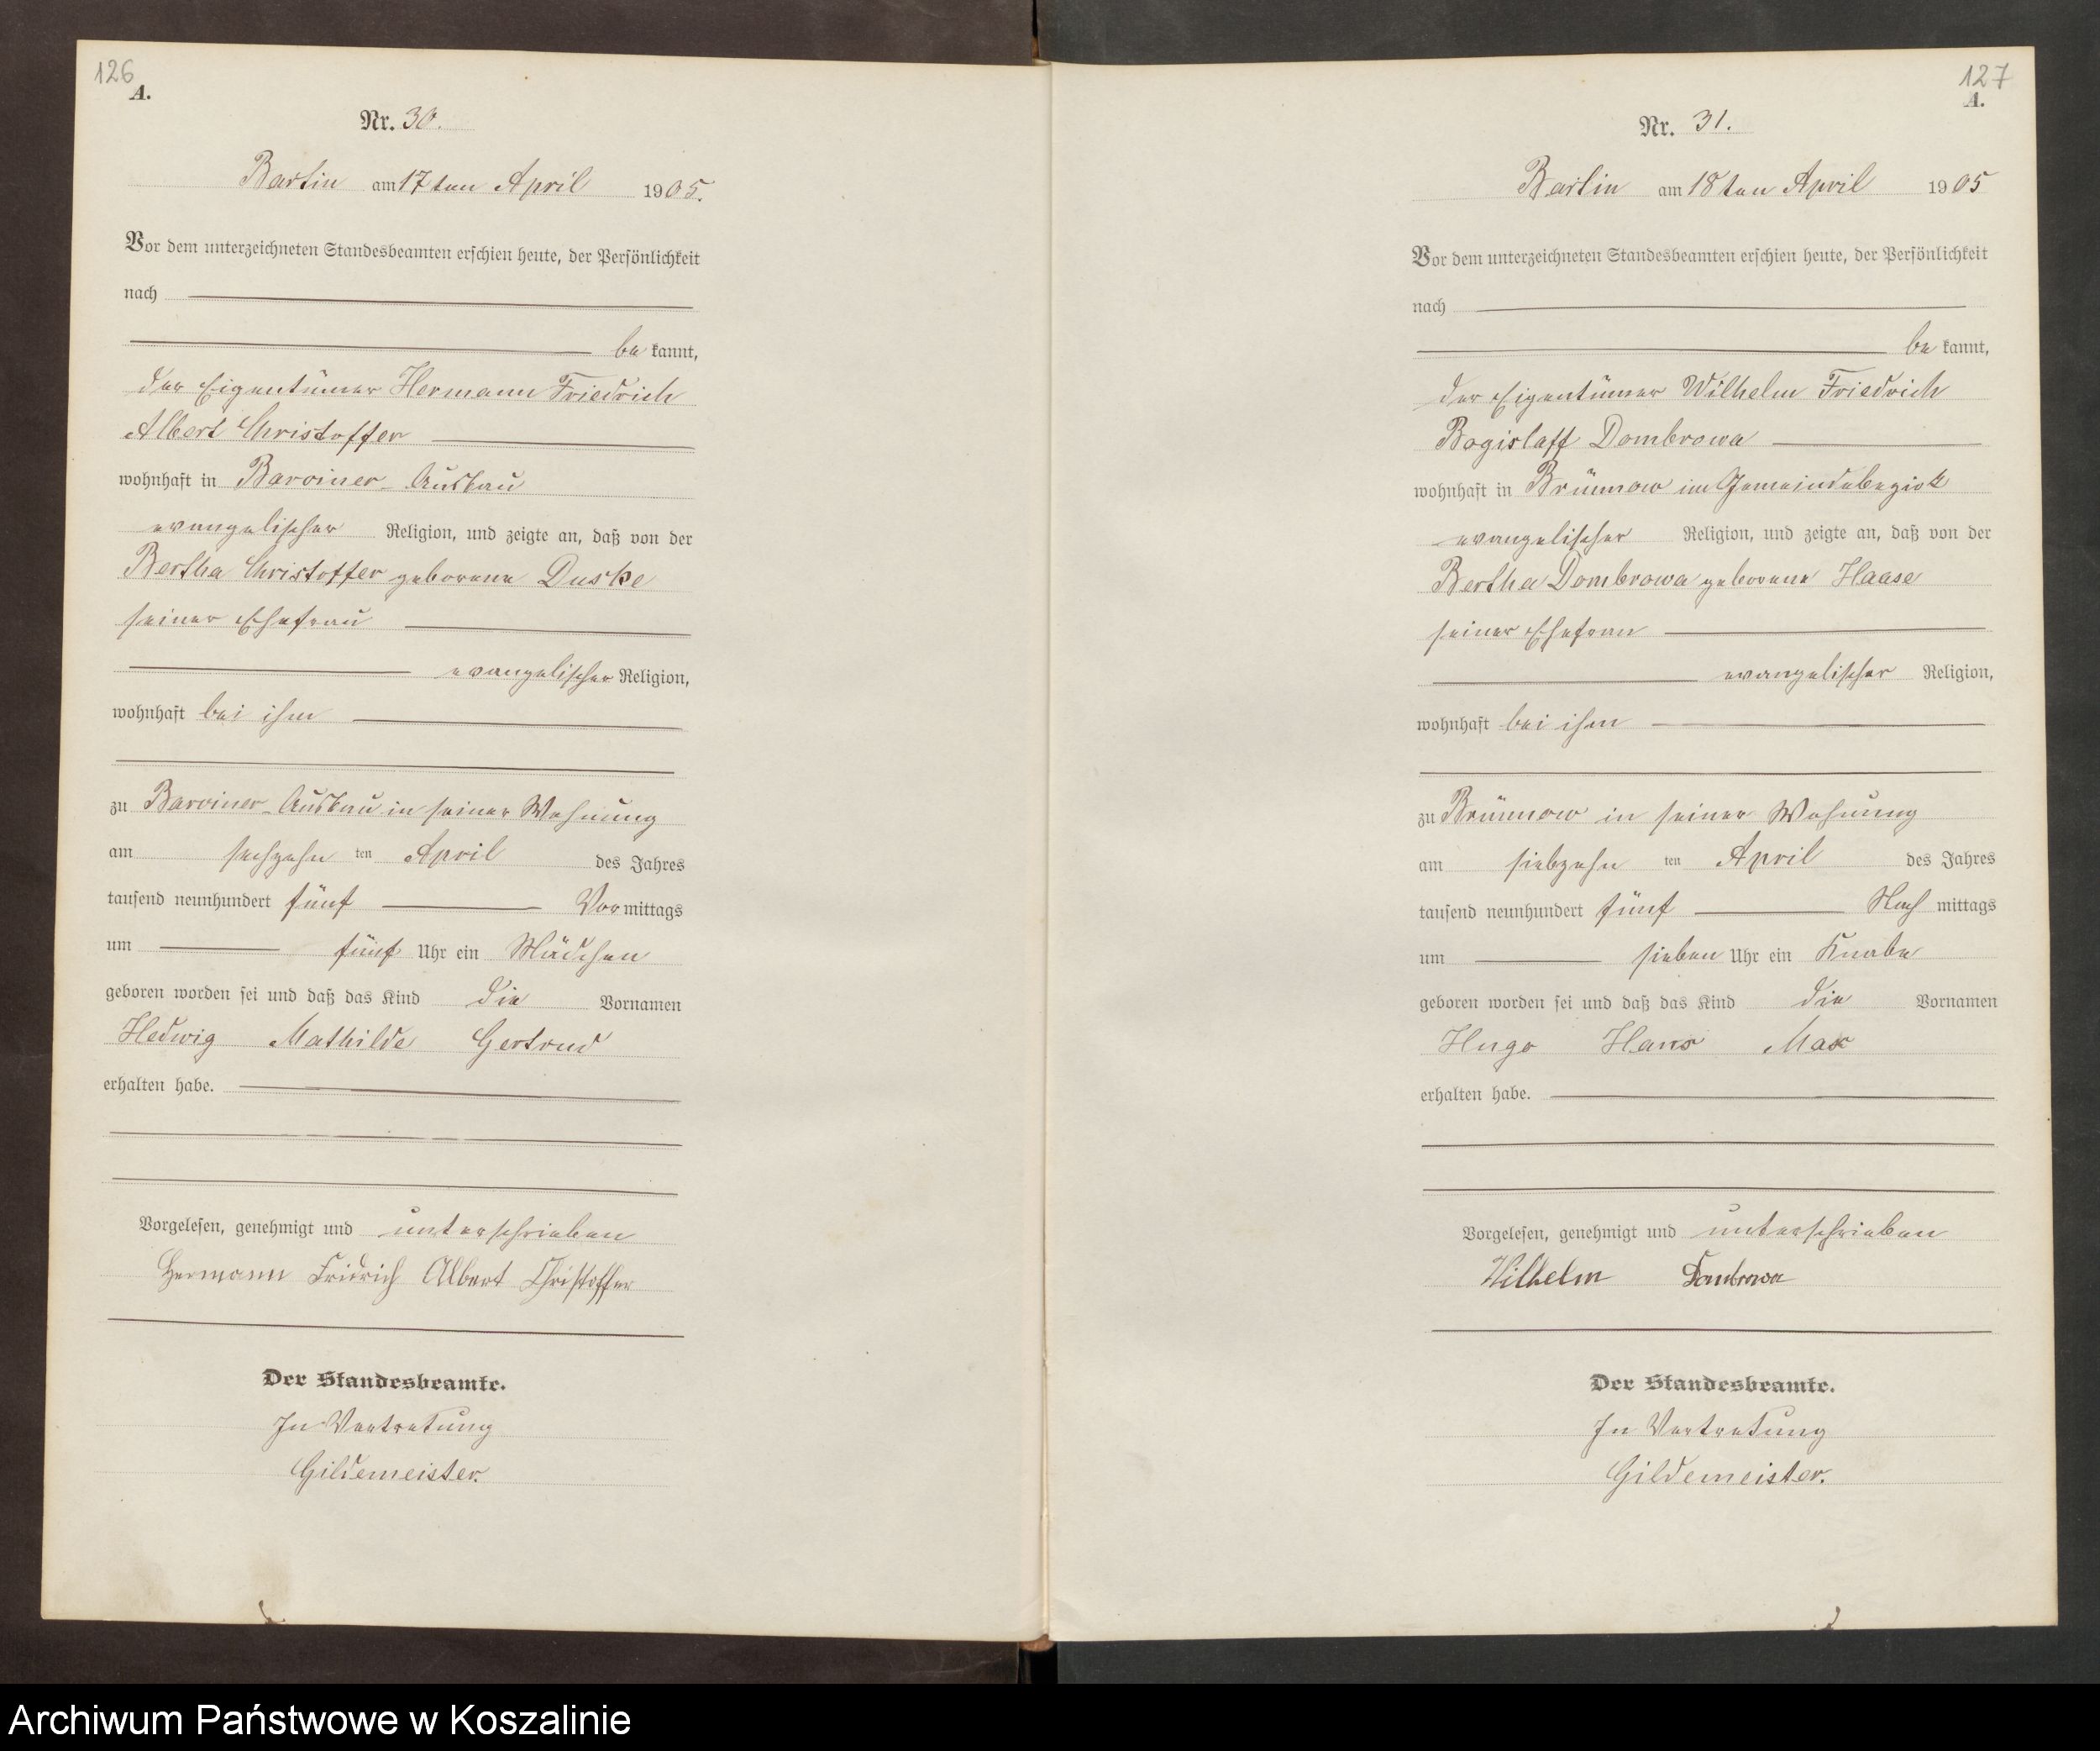 126
A.
Nr. 30.
Bartin am 17ten April 1905.
Vor dem unterzeichneten Standesbeamten erschien heute, der Persönlichkeit
nach
be kannt,
der Eigentümer Hermann Friedrich
Albert Christoffer
wohnhaft in Barviner-Ausbau
evangelischer Religion, und zeigte an, daß von der
Bertha Christoffer geborene Duske
seiner Ehefrau
evangelischer Religion,
wohnhaft bei ihm
zu Barviner-Ausbau in seiner Wohnung
am sechzehn ten April des Jahres
tausend neunhundert fünf Vormittags
um fünf Uhr ein Mädchen
geboren worden sei und daß das Kind die Vornamen
Hedwig Mathilde Gertrud
erhalten habe.
Vorgelesen, genehmigt und unterschrieben
Hermann Fridrich Albert Christoffer
Der Standesbeamte.
In Vertretung
Gildemeister.
127
A.
Nr. 31.
Bartin am 18ten April 1905
Vor dem unterzeichneten Standesbeamten erschien heute, der Persönlichkeit
nach
be kannt,
der Eigentümer Wilhelm Friedrich
Bogislaff Dombrowa
wohnhaft in Brünnow im Gemeindebezirk
evangelischer Religion, und zeigte an, daß von der
Bertha Dombrowa geborene Haase
seiner Ehefrau
evangelischer Religion,
wohnhaft bei ihm
zu Brünnow in seiner Wohnung
am siebzehn ten April des Jahres
tausend neunhundert fünf Nach mittags
um sieben Uhr ein Knabe
geboren worden sei und daß das Kind die Vornamen
Hugo Hans Max
erhalten habe.
Vorgelesen, genehmigt und unterschrieben
Wilhelm Dombrowa
Der Standesbeamte.
In Vertretung
Gildemeister.
Archiwum Państwowe w Koszalinie